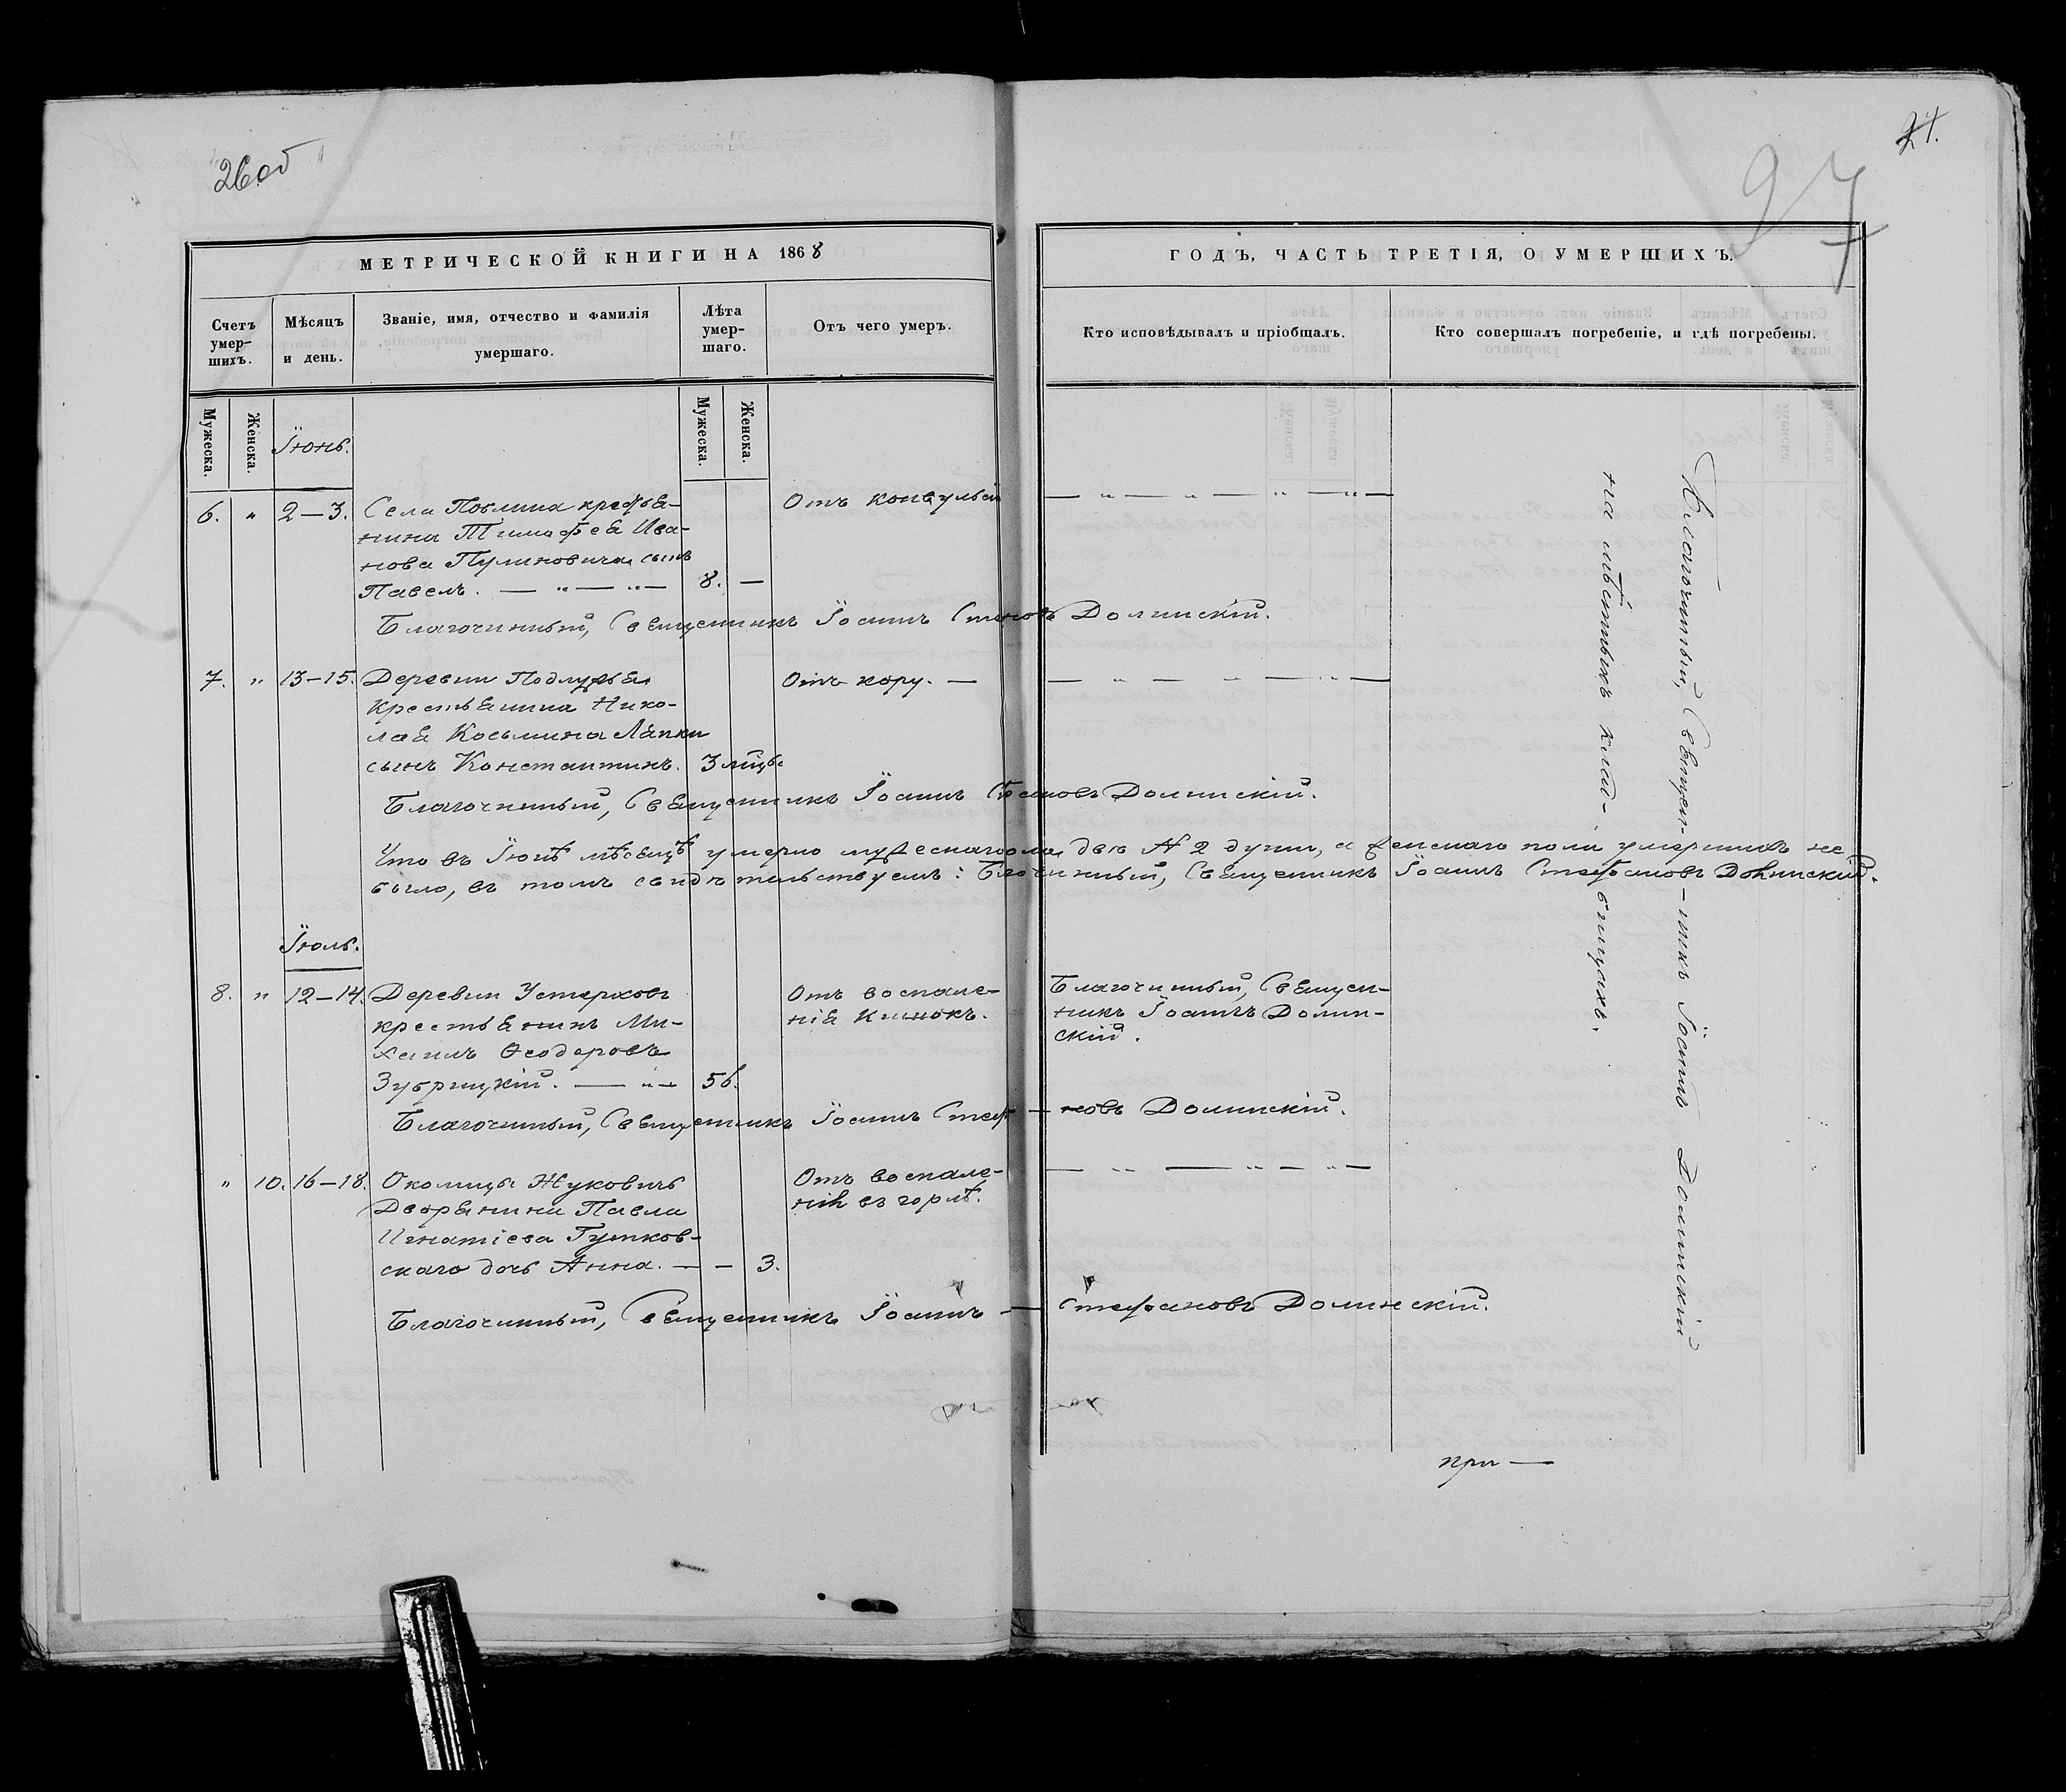 26об
24.
27
МЕТРИЧЕСКОЙ КНИГИ НА 1868
ГОДЪ, ЧАСТЬ ТРЕТІЯ, О УМЕРШИХЪ.
Счетъ умер-шихъ.
Мѣсяцъ и день.
Званіе, имя, отчество и фамилія
умершаго.
Лѣта умер-шаго.
Отъ чего умеръ.
Кто исповѣдывалъ и пріобщалъ.
Кто совершалъ погребеніе, и гдѣ погребены.
Мужеска.
Женска.
Іюнь.
Мужеска.
Женска.
6. " 2—3. Села крестья-
нина Тимофея Ива-
нова Пулиновича сынъ
Павелъ. — " — " — 8. —
Отъ конвульсій
— " — " — " — " —
Благочинный, Священникъ Іоаннъ Долинскій.
7. " 13—15. Деревни
крестьянина Нико-
лая Косьмина Лапки
сынъ Константинъ. 3 мцъ.
Отъ кору. —
— " — " — " —
Благочинный, Священникъ Іоаннъ Долинскій.
Что въ Іюнѣ мѣсяцѣ умерло мужескаго пола двѣ 2 души, а женскаго пола умершихъ не
было, въ томъ свидѣтельствуемъ: Благочинный, Священникъ Іоаннъ Стефановъ Долинскій.
Іюль.
8. " 12—14. Деревни Устерховъ
крестьянинъ Ми-
хаилъ Ѳеодоровъ
Зубрицкій. — " — 56.
Отъ воспале-
нія кишокъ.
Благочинный, Священ-
никъ Іоаннъ Долин-
скій.
Благочинный, Священникъ Іоаннъ Стеф — новъ Долинскій.
" 10. 16—18. Околицы Жуковичъ
Дворянина Павла
Игнатіева Гутков-
скаго дочь Анна. — — 3.
Отъ воспале-
нія въ горлѣ.
— " — " — " —
Благочинный, Священникъ Іоаннъ — Стефановъ Долинскій.
Благочинный, Священ- — никъ Іоаннъ Долинскій
на мѣстныхъ клад- бищахъ.
при —